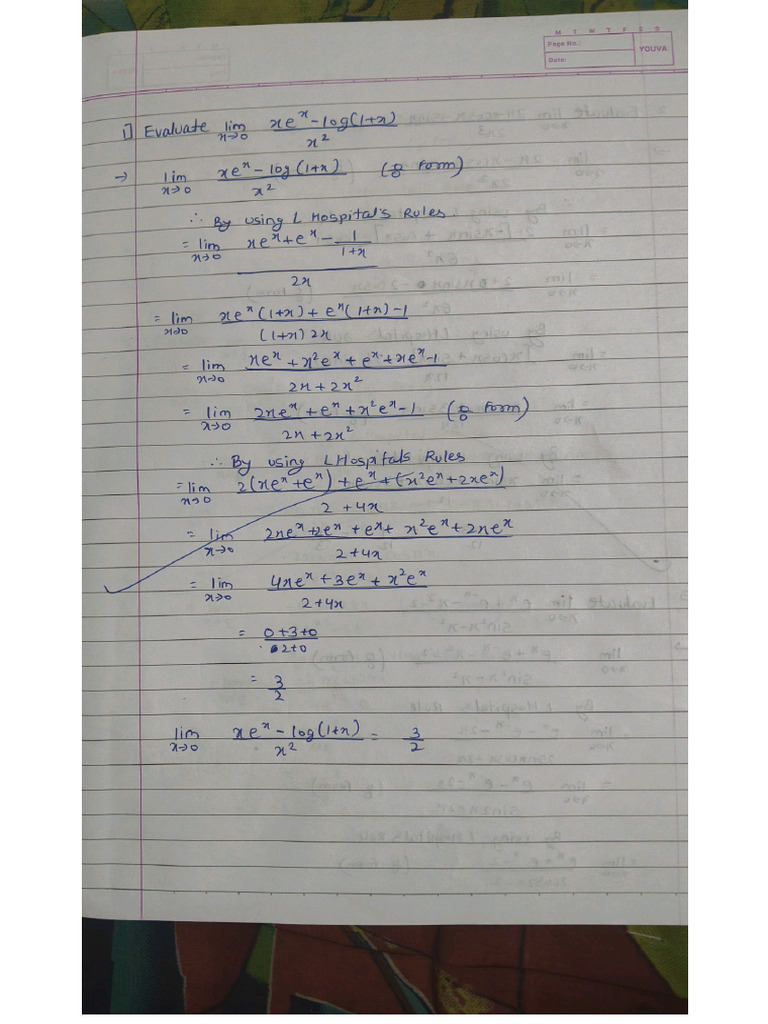 M T W T F S S
Page No.:
YOUVA
Date:
1] Evaluate lim x→0 (xeˣ - log(1+x))/x²
→ lim x→0 (xeˣ - log(1+x))/x² (0/0 form)
∴ By using L Hospital's Rules
= lim x→0 (xeˣ + eˣ - 1/(1+x))/2x
= lim x→0 (xeˣ(1+x) + eˣ(1+x) - 1)/((1+x) 2x)
= lim x→0 (xeˣ + x²eˣ + eˣ + xeˣ - 1)/(2x + 2x²)
= lim x→0 (2xeˣ + eˣ + x²eˣ - 1)/(2x + 2x²) (0/0 form)
∴ By using L Hospitals Rules
= lim x→0 (2(xeˣ + eˣ) + eˣ + (x²eˣ + 2xeˣ))/(2 + 4x)
= lim x→0 (2xeˣ + 2eˣ + eˣ + x²eˣ + 2xeˣ)/(2 + 4x)
= lim x→0 (4xeˣ + 3eˣ + x²eˣ)/(2 + 4x)
= (0+3+0)/(2+0)
= 3/2
lim x→0 (xeˣ - log(1+x))/x² = 3/2